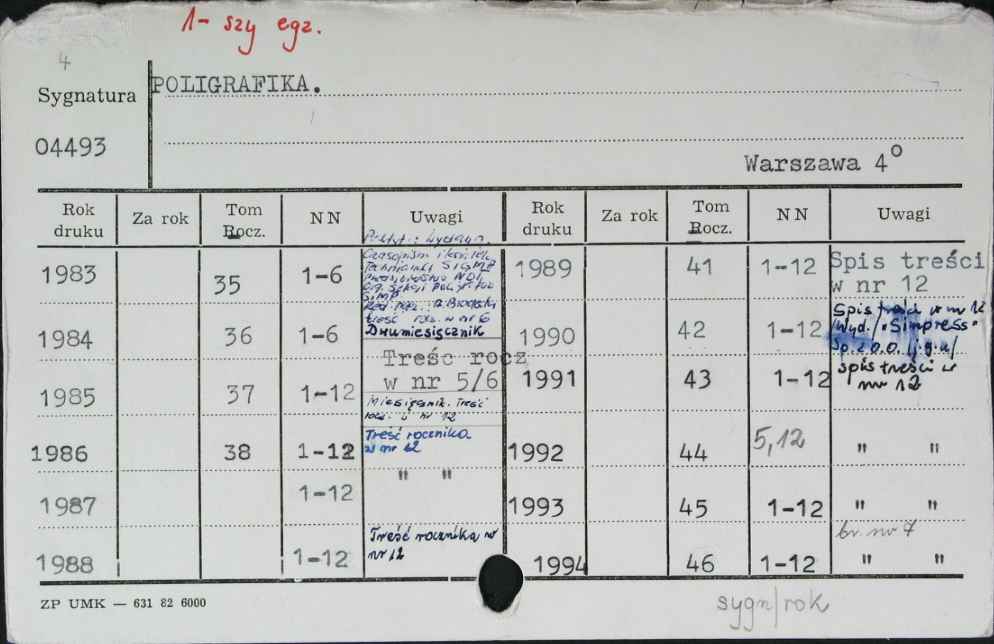 1-szy egz.
4
Sygnatura POLIGRAFIKA.
04493
Warszawa 4°
Rok druku Za rok Tom Rocz. NN Uwagi Rok druku Za rok Tom Rocz. NN Uwagi
1983 35 1-6
treść w nr 6
Dwumiesięcznik
1989 41 1-12 Spis treści
w nr 12
1984 36 1-6 Treśc rocz
w nr 5/6
1990 42 1-12 Spis treści w nr 12
Wyd. "Simpress"
Sp. z o.o.
1985 37 1-12 Miesięcznik. Treść
rocz. w nr 12
1991 43 1-12 spis treści w
nr 12
1986 38 1-12 Treść rocznika
w nr 12
1992 44 5,12 " "
1987 1-12 " "
1993 45 1-12 " "
1988 1-12 Treść rocznika w
nr 12
br. nr 7
1994 46 1-12 " "
ZP UMK — 631 82 6000
sygn/rok